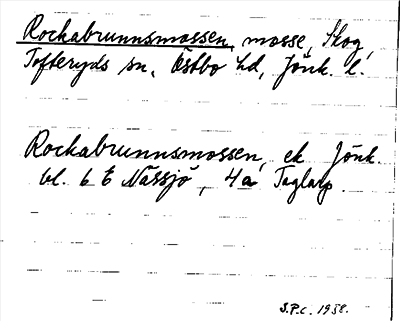 Rockabrunnsmossen, mosse, Skog,
Tofteryds sn, Östbo hd, Jönk. l.
Rockabrunnsmossen, ek Jönk.
bl. 6 E Nässjö, 4a Taglarp.
S.P.C. 1958.